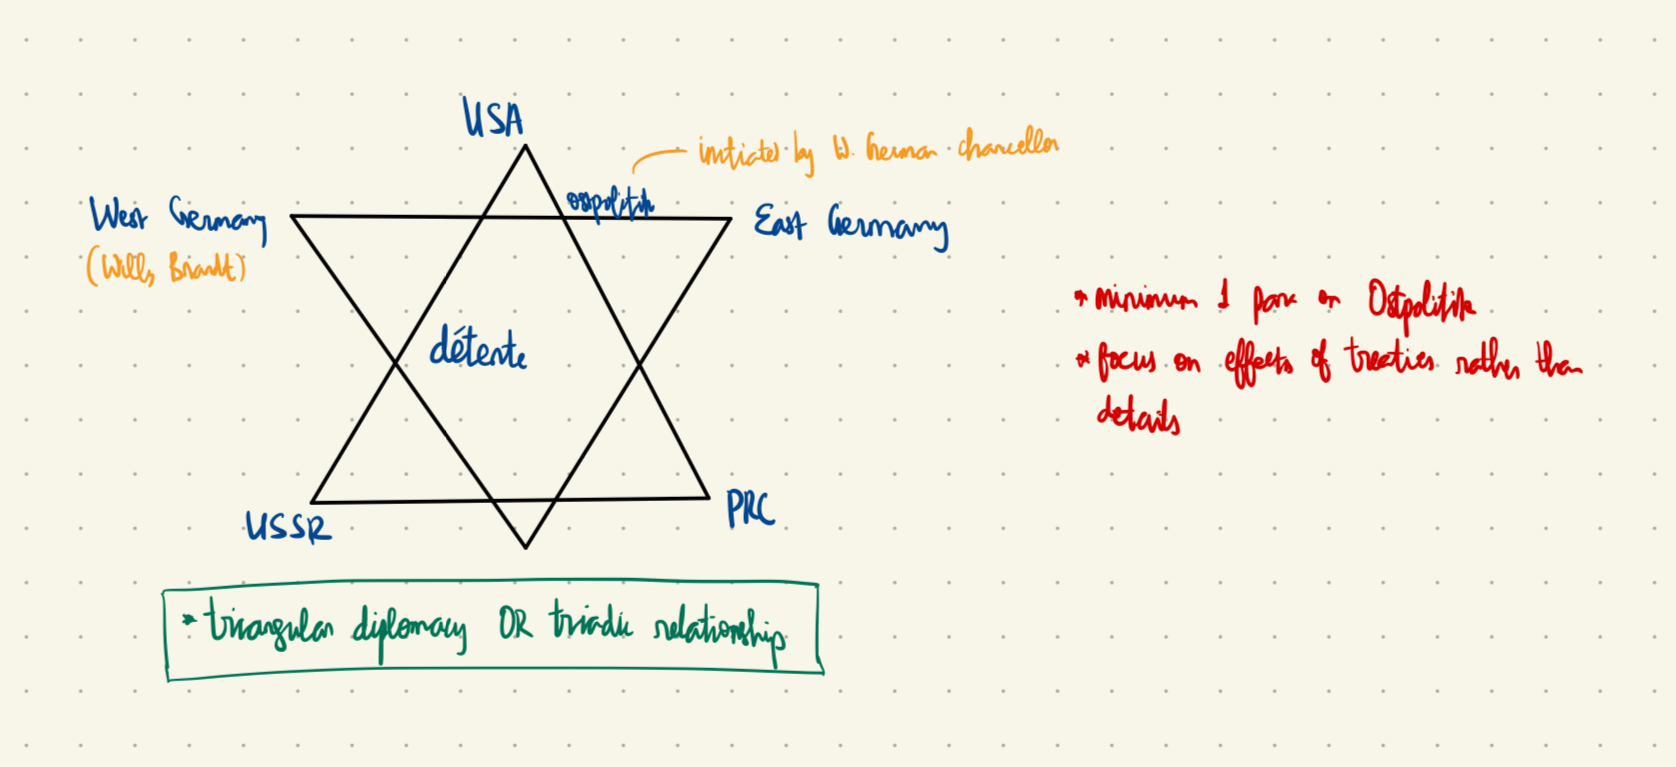 USA
initiated by W. German chancellor
ospolitik
West Germany
East Germany
(Willy Brandt)
* minimum 1 para on Ostpolitik
détente
* focus on effects of treaties rather than
details
USSR
PRC
* triangular diplomacy OR triadic relationship